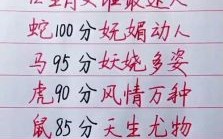 蛇100分妩媚动人
马95分妖娆多姿
虎90分风情万种
鼠85分天生尤物